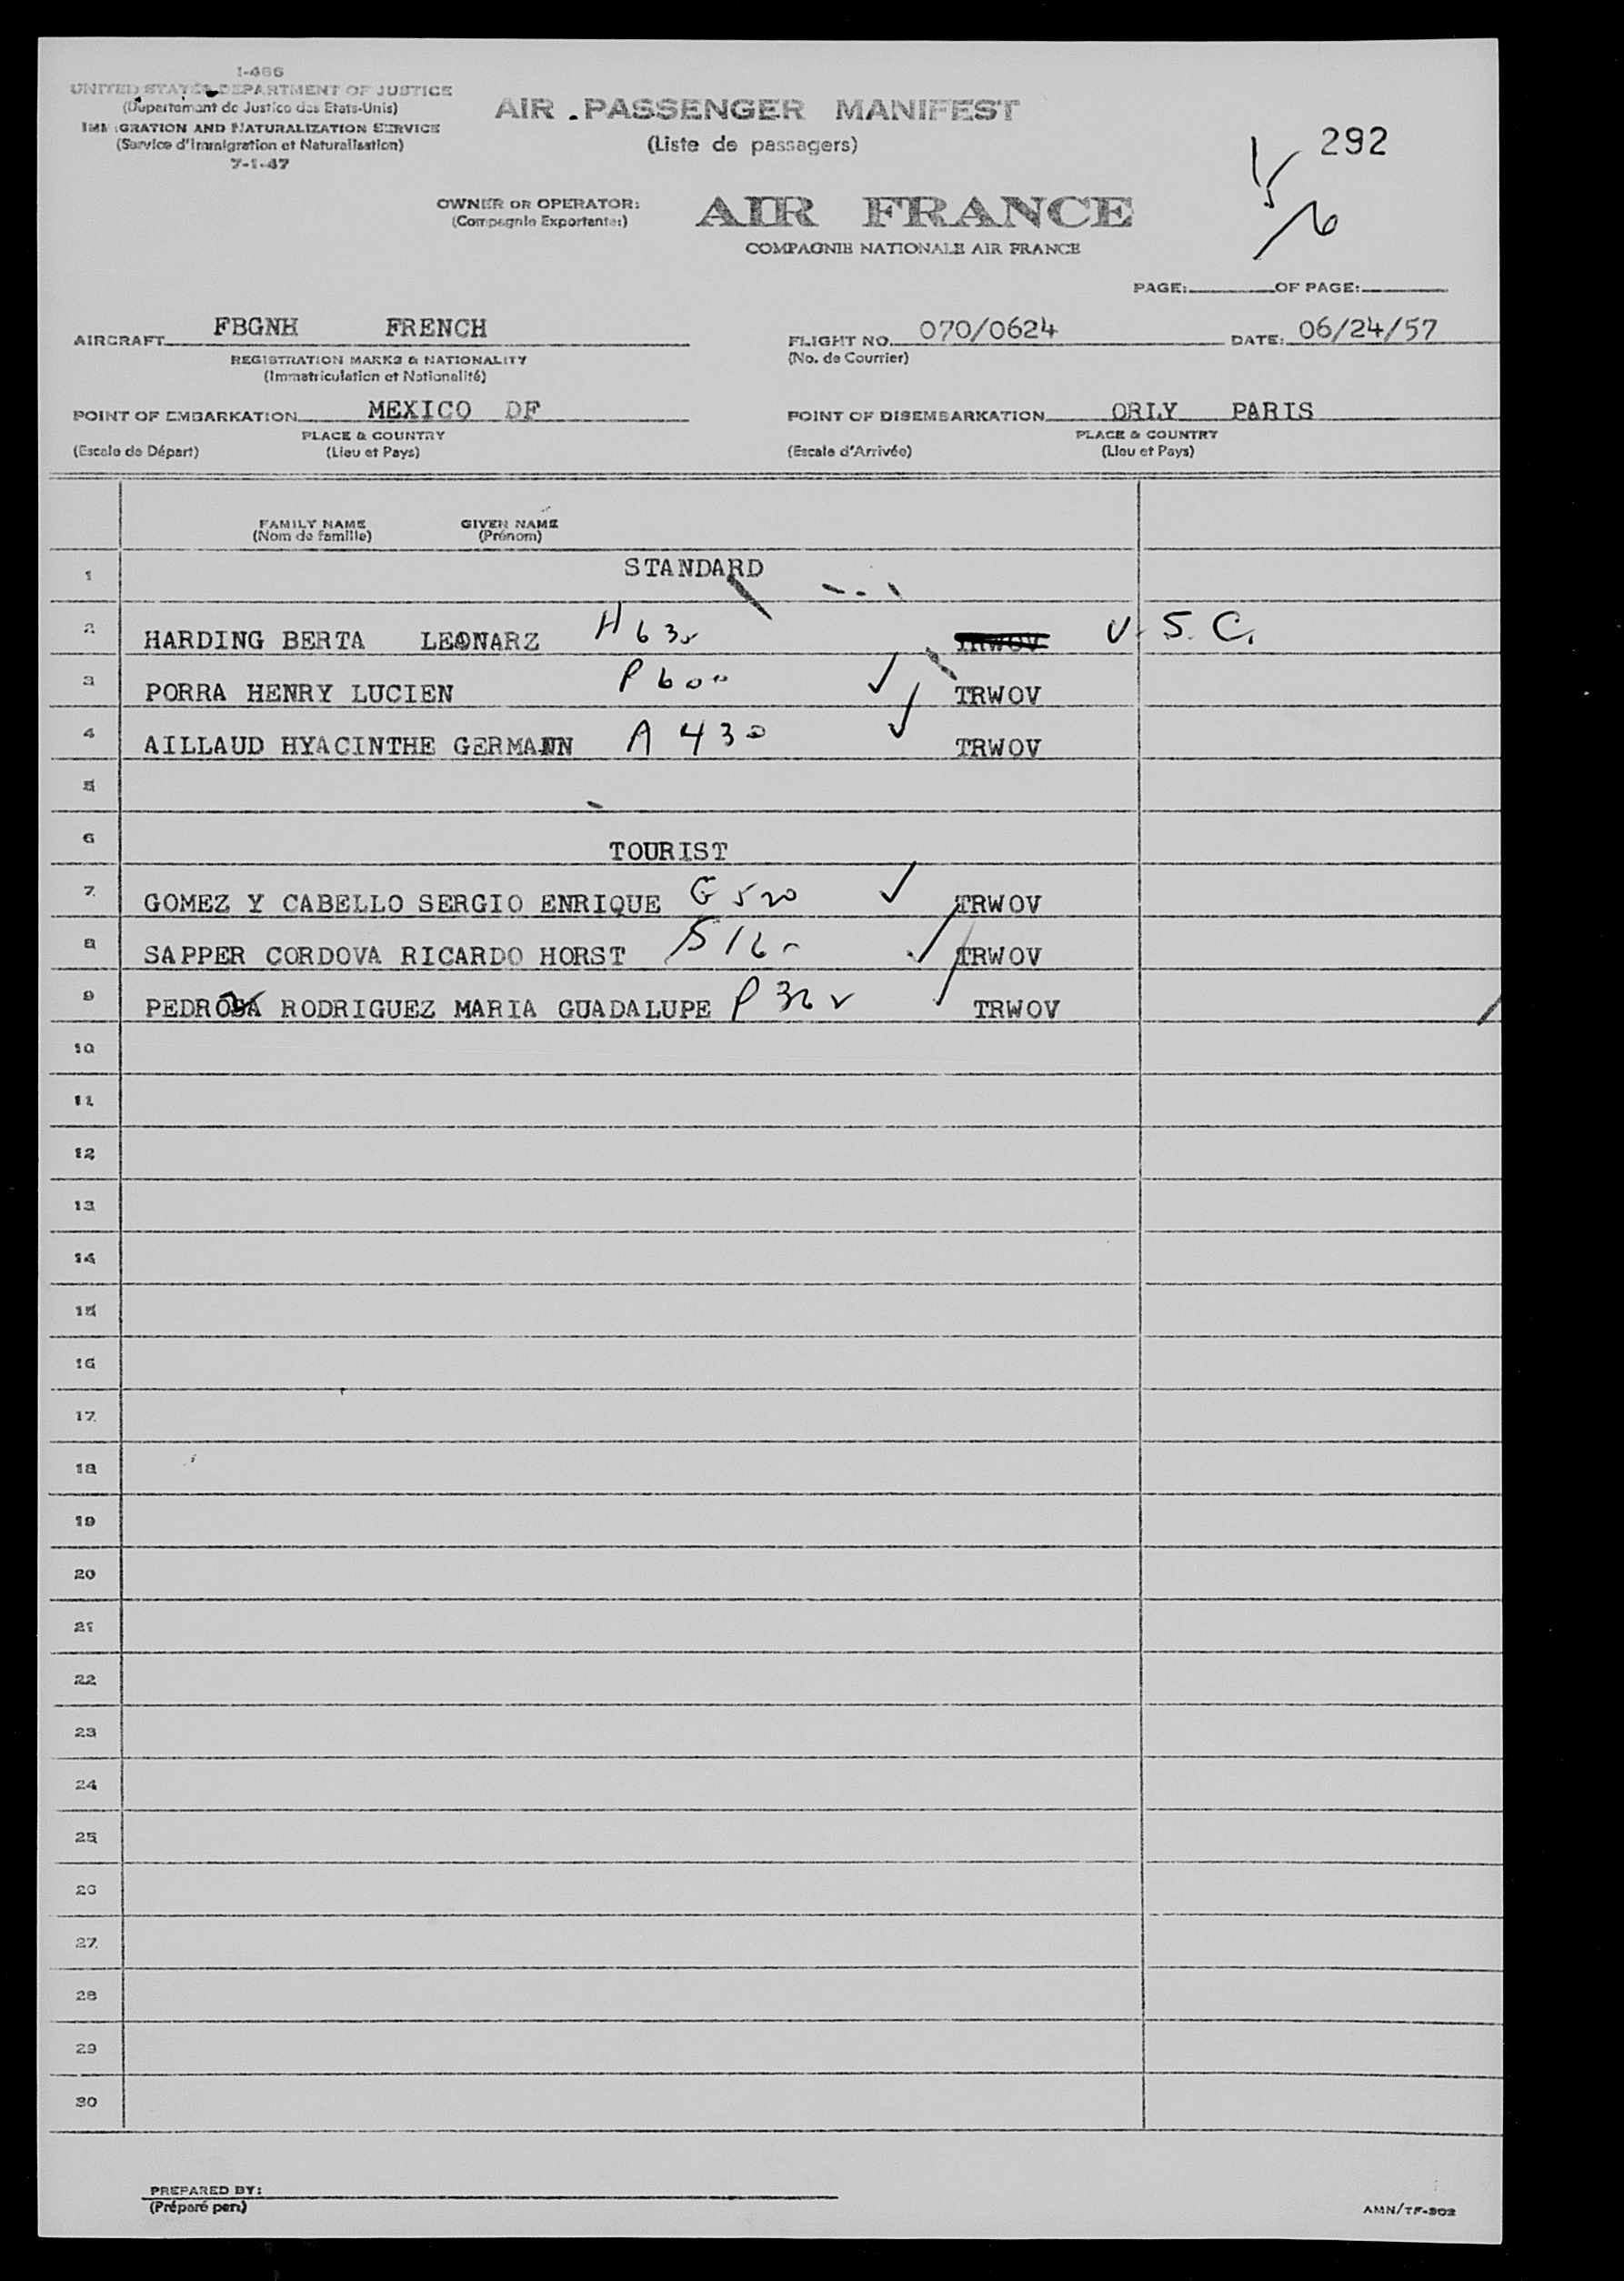 I-466
UNITED STATES DEPARTMENT OF JUSTICE
(Département de Justice des Etats-Unis)
IMMIGRATION AND NATURALIZATION SERVICE
(Service d'Immigration et Naturalisation)
7-1-47
AIR PASSENGER MANIFEST
(Liste de passagers)
292
OWNER OR OPERATOR:
(Compagnie Exportante:)
AIR FRANCE
COMPAGNIE NATIONALE AIR FRANCE
PAGE: OF PAGE:
AIRCRAFT FBGNH FRENCH
REGISTRATION MARKS & NATIONALITY
(Immatriculation et Nationalité)
FLIGHT NO. 070/0624
(No. de Courrier)
DATE: 06/24/57
POINT OF EMBARKATION MEXICO DF
PLACE & COUNTRY
(Escale de Départ) (Lieu et Pays)
POINT OF DISEMBARKATION ORLY PARIS
PLACE & COUNTRY
(Escale d'Arrivée) (Lieu et Pays)
FAMILY NAME GIVEN NAME
(Nom de famille) (Prénom)
1 STANDARD
2 HARDING BERTA LEONARZ H 63 TRWOV U.S.C.
3 PORRA HENRY LUCIEN P 600 TRWOV
4 AILLAUD HYACINTHE GERMANN A 430 TRWOV
5
6 TOURIST
7 GOMEZ Y CABELLO SERGIO ENRIQUE G 520 TRWOV
8 SAPPER CORDOVA RICARDO HORST S 160 TRWOV
9 PEDROZA RODRIGUEZ MARIA GUADALUPE P 362 TRWOV
10
11
12
13
14
15
16
17
18
19
20
21
22
23
24
25
26
27
28
29
30
PREPARED BY:
(Préparé par:)
AMN/TF-302